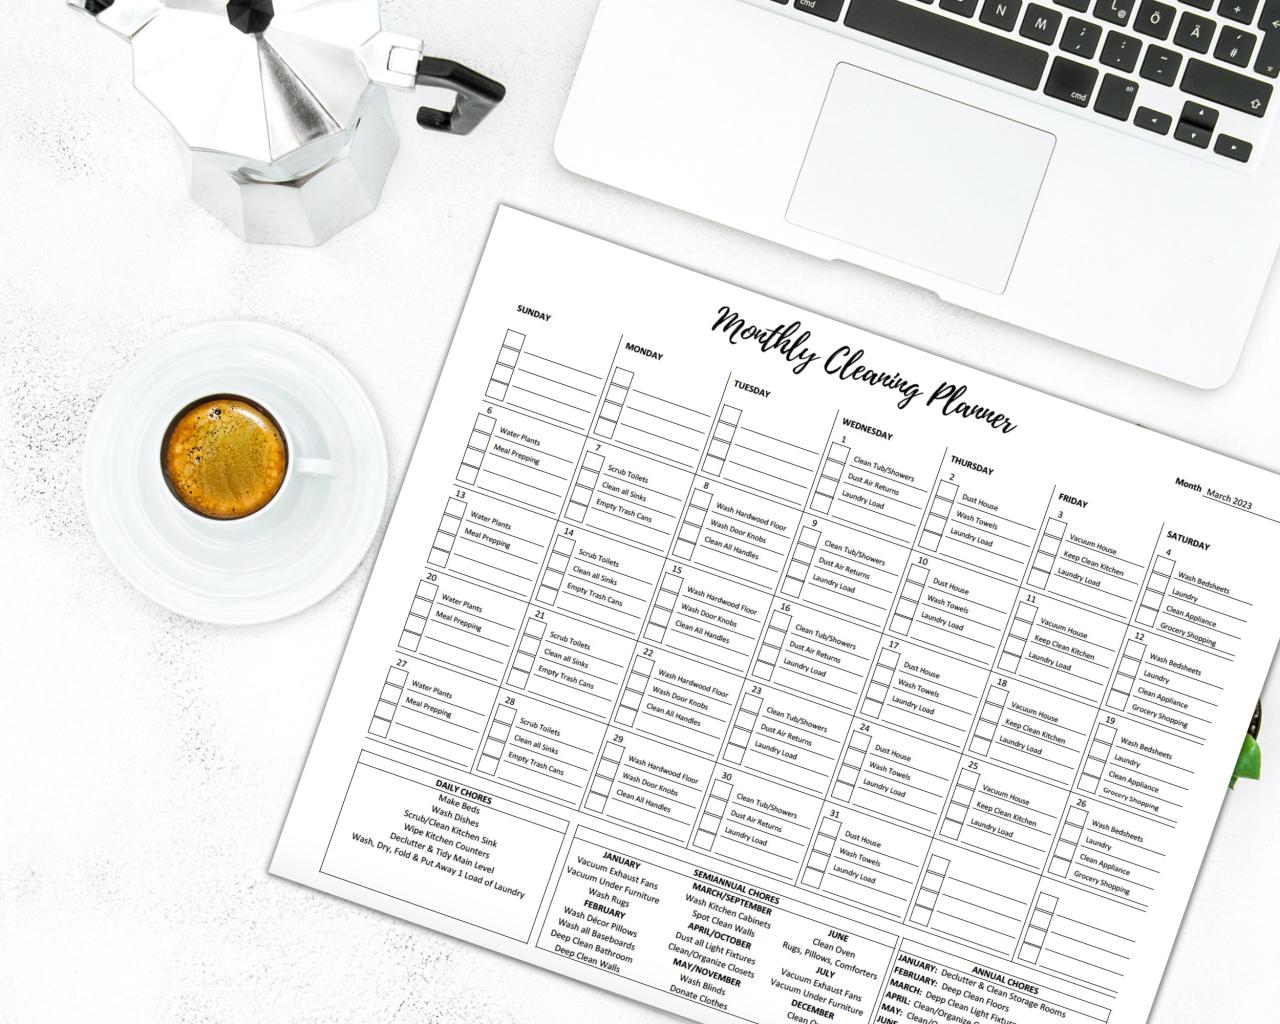 cmd
N
M
;
:
L
@
Ö
Ä
#
cmd
alt
Monthly Cleaning Planner
Month March 2023
SUNDAY
MONDAY
TUESDAY
WEDNESDAY
THURSDAY
FRIDAY
SATURDAY
1
Clean Tub/Showers
Dust Air Returns
Laundry Load
2
Dust House
Wash Towels
Laundry Load
3
Vacuum House
Keep Clean Kitchen
Laundry Load
4
Wash Bedsheets
Laundry
Clean Appliance
Grocery Shopping
6
Water Plants
Meal Prepping
7
Scrub Toilets
Clean all Sinks
Empty Trash Cans
8
Wash Hardwood Floor
Wash Door Knobs
Clean All Handles
9
Clean Tub/Showers
Dust Air Returns
Laundry Load
10
Dust House
Wash Towels
Laundry Load
11
Vacuum House
Keep Clean Kitchen
Laundry Load
12
Wash Bedsheets
Laundry
Clean Appliance
Grocery Shopping
13
Water Plants
Meal Prepping
14
Scrub Toilets
Clean all Sinks
Empty Trash Cans
15
Wash Hardwood Floor
Wash Door Knobs
Clean All Handles
16
Clean Tub/Showers
Dust Air Returns
Laundry Load
17
Dust House
Wash Towels
Laundry Load
18
Vacuum House
Keep Clean Kitchen
Laundry Load
19
Wash Bedsheets
Laundry
Clean Appliance
Grocery Shopping
20
Water Plants
Meal Prepping
21
Scrub Toilets
Clean all Sinks
Empty Trash Cans
22
Wash Hardwood Floor
Wash Door Knobs
Clean All Handles
23
Clean Tub/Showers
Dust Air Returns
Laundry Load
24
Dust House
Wash Towels
Laundry Load
25
Vacuum House
Keep Clean Kitchen
Laundry Load
26
Wash Bedsheets
Laundry
Clean Appliance
Grocery Shopping
27
Water Plants
Meal Prepping
28
Scrub Toilets
Clean all Sinks
Empty Trash Cans
29
Wash Hardwood Floor
Wash Door Knobs
Clean All Handles
30
Clean Tub/Showers
Dust Air Returns
Laundry Load
31
Dust House
Wash Towels
Laundry Load
DAILY CHORES
Make Beds
Wash Dishes
Scrub/Clean Kitchen Sink
Wipe Kitchen Counters
Declutter & Tidy Main Level
Wash, Dry, Fold & Put Away 1 Load of Laundry
SEMIANNUAL CHORES
JANUARY
Vacuum Exhaust Fans
Vacuum Under Furniture
Wash Rugs
FEBRUARY
Wash Décor Pillows
Wash all Baseboards
Deep Clean Bathroom
Deep Clean Walls
MARCH/SEPTEMBER
Wash Kitchen Cabinets
Spot Clean Walls
APRIL/OCTOBER
Dust all Light Fixtures
Clean/Organize Closets
MAY/NOVEMBER
Wash Blinds
Donate Clothes
JUNE
Clean Oven
Rugs, Pillows, Comforters
JULY
Vacuum Exhaust Fans
Vacuum Under Furniture
DECEMBER
Clean
ANNUAL CHORES
JANUARY: Declutter & Clean Storage Rooms
FEBRUARY: Deep Clean Floors
MARCH: Depp Clean Light
APRIL: Clean/Organize
MAY:
JUNE